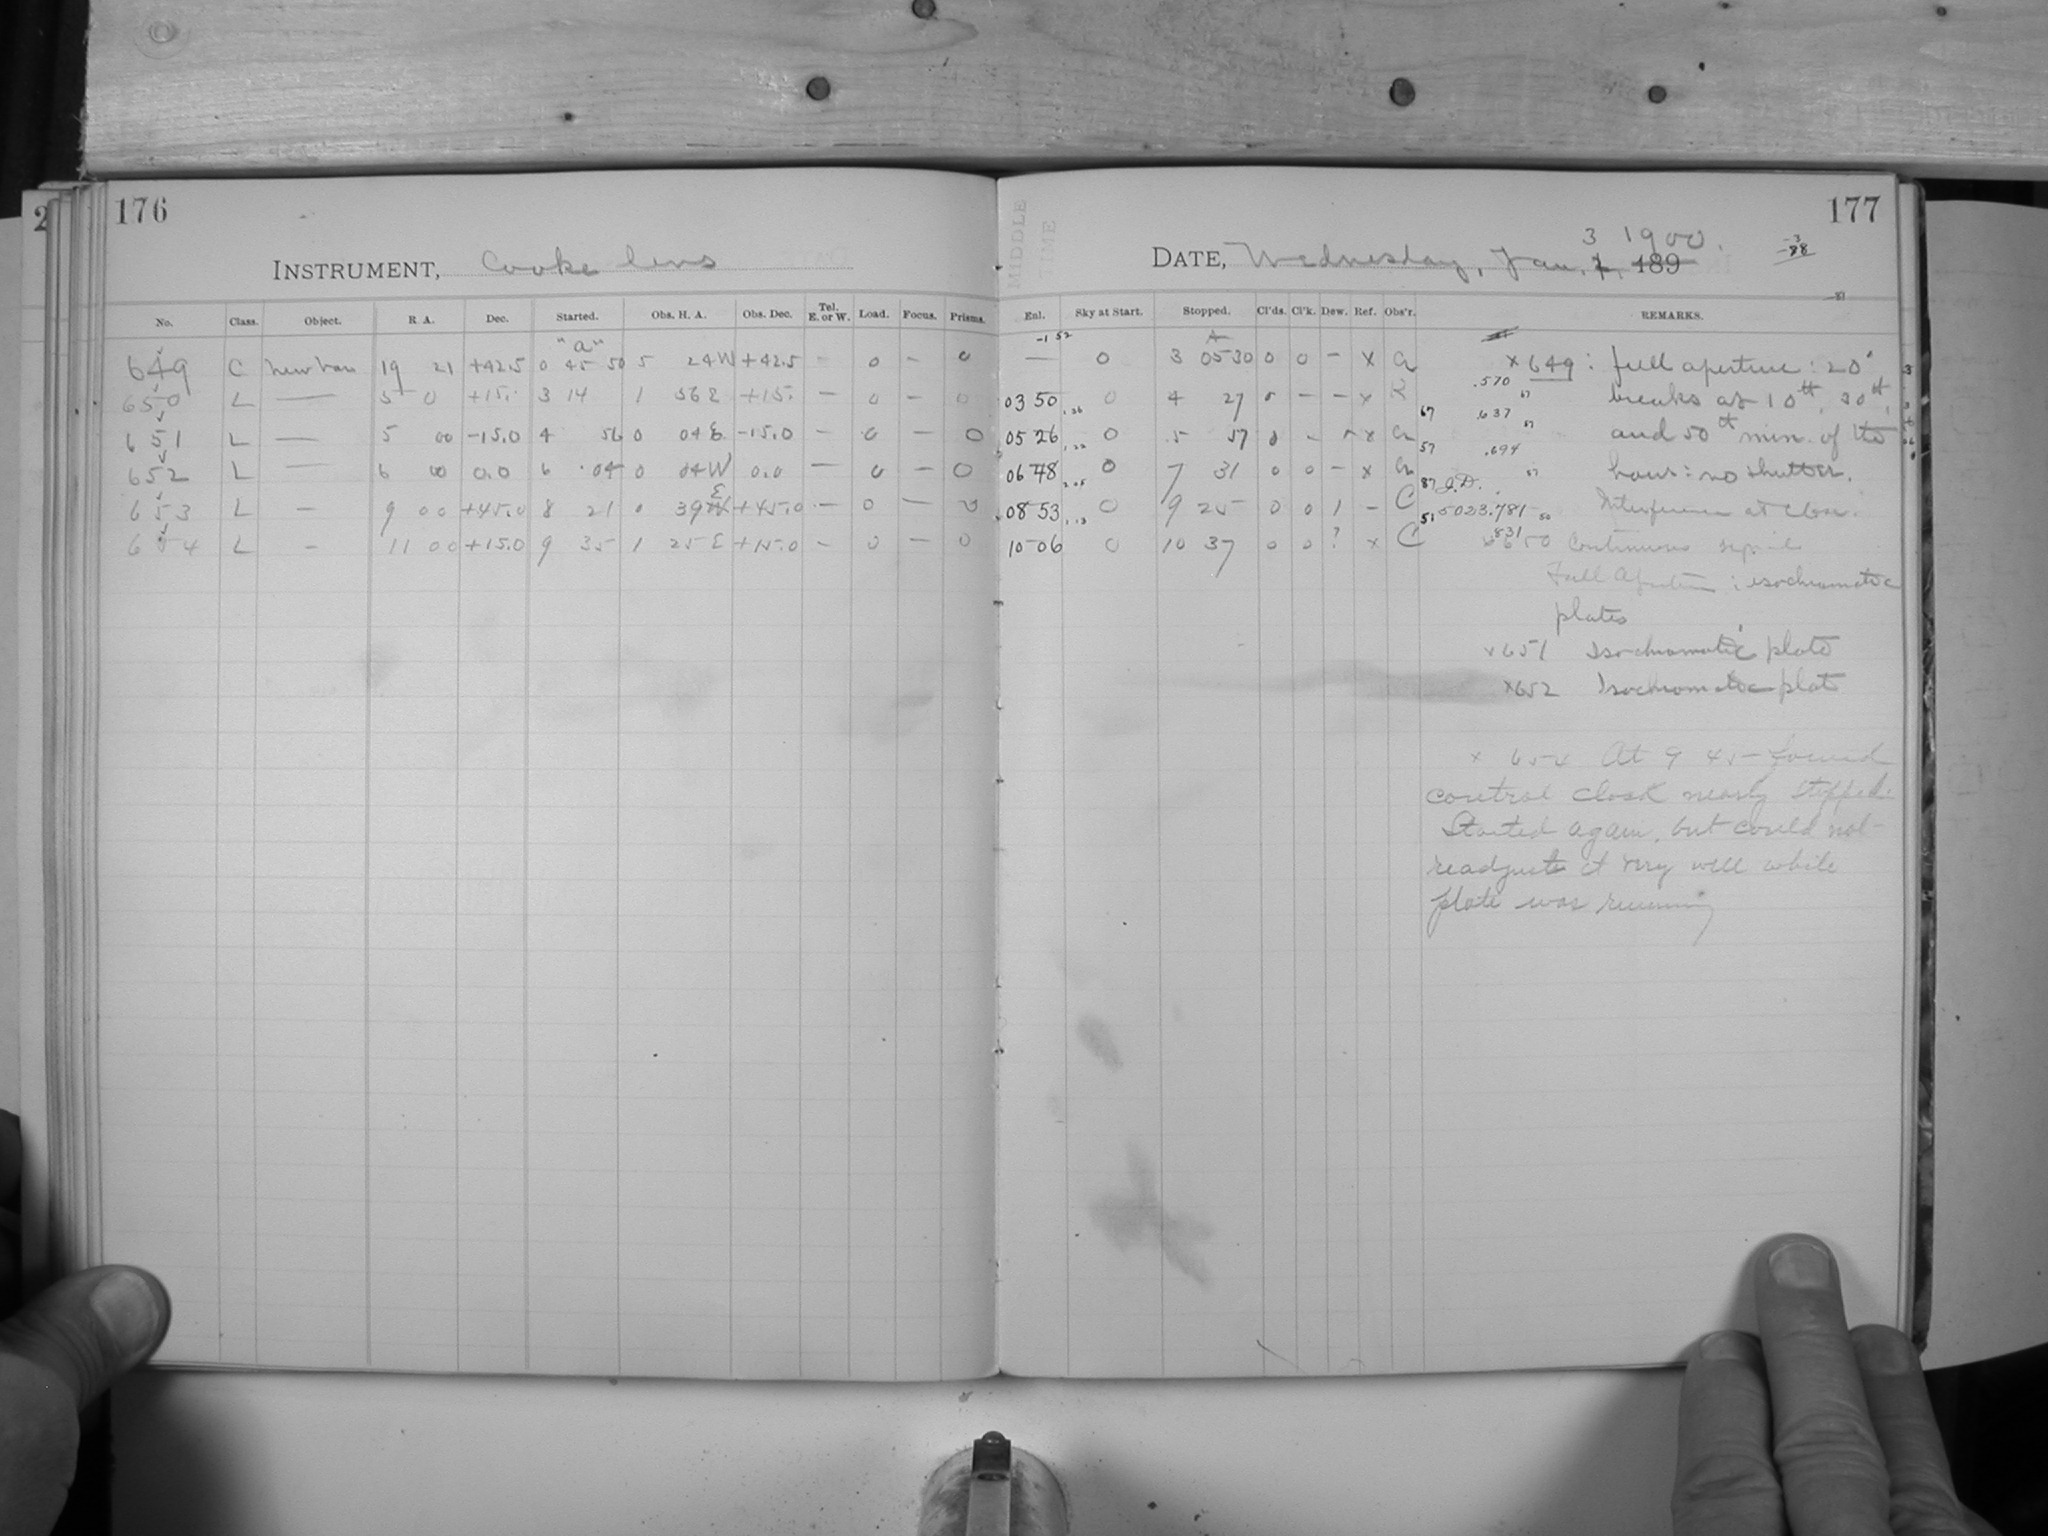 176
177
2
INSTRUMENT, Cooke lens
DATE, Wednesday, Jan. 3 1900. 189
-3
-88
MIDDLE
TIME
No. Class. Object. R. A. Dec. Started. Obs. H. A. Obs. Dec. Tel. E. or W. Load. Focus. Prisms. Enl. Sky at Start. Stopped. Cl'ds. Cl'k. Dew. Ref. Obs'r. REMARKS.
"a" -1 52
649 C 19 21 +42.5 0 45 50 5 24W +42.5 - 0 - 0 — 0 3 05 30 0 0 - x × 649: full aperture: 20s
650 L — 5 0 +15. 3 14 1 56E +15. - 0 - 0 03 50 0 4 27 - - x breaks at 10th, 30th,
651 L — 5 00 -15.0 4 56 0 04E -15.0 - 0 - 0 05 26 0 5 57 0 - x and 50th min. of the
652 L — 6 00 0.0 6 04 0 04W 0.0 - 0 - 0 06 48 0 7 31 0 0 - x hour: no shutter.
653 L — 9 00 +45.0 8 21 0 39 E +45.0 - 0 - 0 08 53 0 9 25 0 0 1 - C J.D. 5023.781 Interference at close.
654 L - 11 00 +15.0 9 35 1 25 E +15.0 - 0 - 0 10 06 0 10 37 0 0 ? x C 650 Continuous
.570
.637
.694
.831
Full Aperture: isochromatic
plates
×651 Isochromatic plate
×652 Isochromatic plate
× 654 At 9 45 found
control clock nearly stopped.
Started again, but could not
readjust it very well while
plate was running